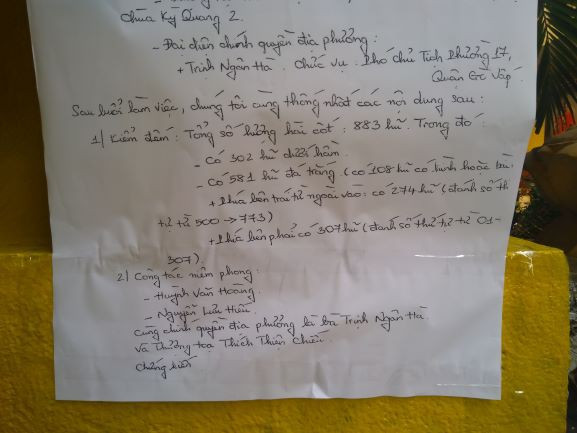 Chùa Kỳ Quang 2.
- Đại diện chính quyền địa phương:
+ Trịnh Ngân Hà. Chức vụ: Phó chủ Tịch Phường 17,
Quận Gò Vấp.
Sau buổi làm việc, chúng tôi cùng thống nhất các nội dung sau:
1/ Kiểm đếm: Tổng số lượng hài cốt: 883 hũ. Trong đó:
- Có 302 hũ dưới hầm.
- Có 581 hũ đá trắng. (có 108 hũ có hình hoặc
+ Phía bên trái từ ngoài vào: có 274 hũ (đánh số th
tự từ 500 → 773)
+ Phía bên phải có 307 hũ (đánh số thứ tự từ 01-
307).
2/ Công tác niêm phong:
- Huỳnh Văn Hoàng.
- Nguyễn Lưu Hiếu.
Cùng chính quyền địa phương là bà Trịnh Ngân Hà.
và Thượng toạ Thích Thiện Chiếu.
chứng kiến